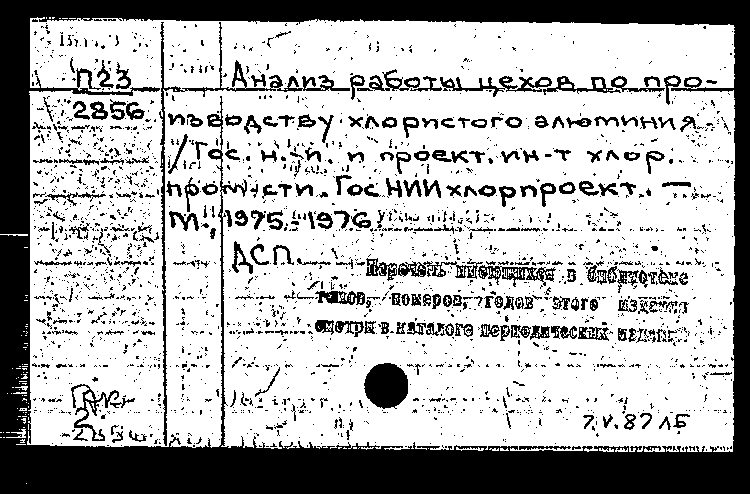 П23
2856
Анализ работы цехов по про-
изводству хлористого алюминия.
/ Гос. н.-и. и проект. ин-т хлор.
пром-сти. ГосНИИхлорпроект. —
М., 1975-1976
ДСП.
Перечень имеющихся в библиотеке
томов, номеров, годов этого издания
смотри в каталоге периодических издан.
7.V.87 ЛБ